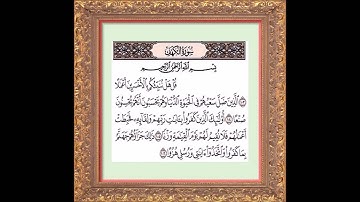 سُورَةُ الكَهْفِ
بِسْمِ ٱللَّهِ ٱلرَّحْمَٰنِ ٱلرَّحِيمِ
قُلْ هَلْ نُنَبِّئُكُم بِٱلْأَخْسَرِينَ أَعْمَٰلًا
١٠٣ ٱلَّذِينَ ضَلَّ سَعْيُهُمْ فِى ٱلْحَيَوٰةِ ٱلدُّنْيَا وَهُمْ يَحْسَبُونَ أَنَّهُمْ يُحْسِنُونَ
صُنْعًا ١٠٤ أُو۟لَٰٓئِكَ ٱلَّذِينَ كَفَرُوا۟ بِـَٔايَٰتِ رَبِّهِمْ وَلِقَآئِهِۦ فَحَبِطَتْ
أَعْمَٰلُهُمْ فَلَا نُقِيمُ لَهُمْ يَوْمَ ٱلْقِيَٰمَةِ وَزْنًا ١٠٥ ذَٰلِكَ جَزَآؤُهُمْ جَهَنَّمُ
بِمَا كَفَرُوا۟ وَٱتَّخَذُوٓا۟ ءَايَٰتِى وَرُسُلِى هُزُوًا ١٠٦